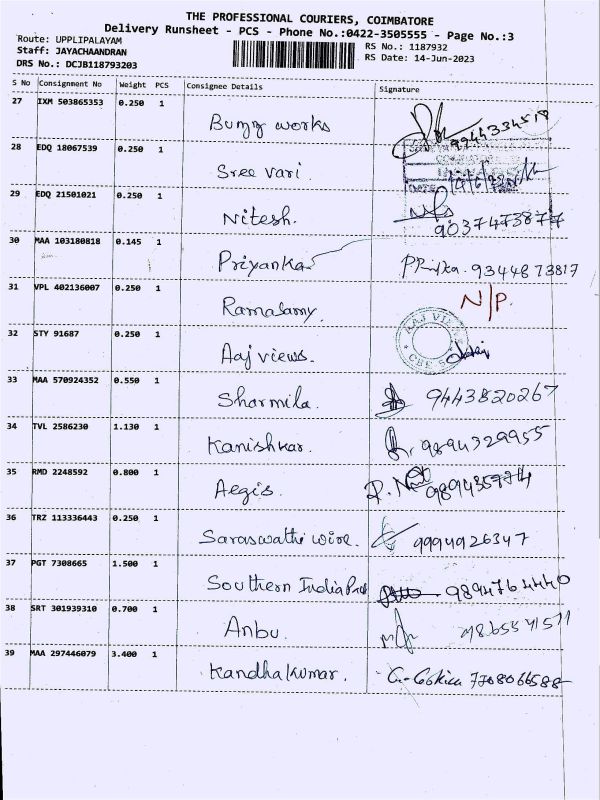 THE PROFESSIONAL COURIERS, COIMBATORE
Delivery Runsheet - PCS - Phone No.:0422-3505555 - Page No.:3
Route: UPPLIPALAYAM
Staff: JAYACHAANDRAN
DRS No.: DCJB118793203
RS No.: 1187932
RS Date: 14-Jun-2023
S No Consignment No Weight PCS Consignee Details Signature
27 IXM 503865353 0.250 1 Buzz works 9944334518
28 EDQ 18067539 0.250 1 Sree vari.
29 EDQ 21501021 0.250 1 Nitesh. 9037473877
30 MAA 103180818 0.145 1 Priyanka 9344873817
31 VPL 402136007 0.250 1 Ramasamy. N/P.
32 STY 91687 0.250 1 Aaj views.
33 MAA 570924352 0.550 1 Sharmila. 9443820267
34 TVL 2586230 1.130 1 Kanishkar. 9894329955
35 RMD 2248592 0.800 1 Aegis.
36 TRZ 113336443 0.250 1 Saraswathi wire. 9994926347
37 PGT 7308665 1.500 1 Southern India 9894764440
38 SRT 301939310 0.700 1 Anbu.
39 MAA 297446079 3.400 1 Kandhakumar. 7708066588